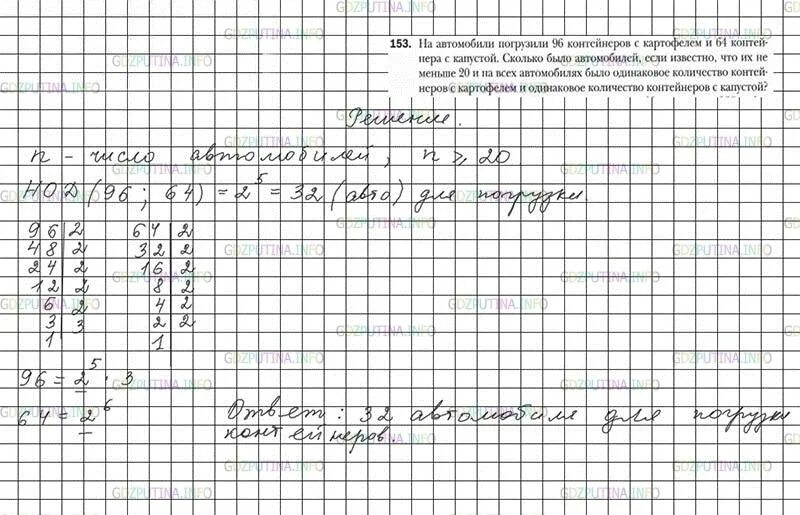 153. На автомобили погрузили 96 контейнеров с картофелем и 64 контей-
нера с капустой. Сколько было автомобилей, если известно, что их не
меньше 20 и на всех автомобилях было одинаковое количество контей-
неров с картофелем и одинаковое количество контейнеров с капустой?
Решение.
n - число автомобилей, n ⩾ 20
НОД (96 ; 64) = 2⁵ = 32 (авто) для погрузки
96 | 2    64 | 2
48 | 2    32 | 2
24 | 2    16 | 2
12 | 2    8 | 2
6 | 2    4 | 2
3 | 3    2 | 2
1 |    1 |
96 = 2⁵ · 3
64 = 2⁶
Ответ : 32 автомобиля для погрузки
контейнеров.
GDZPUTINA.INFO